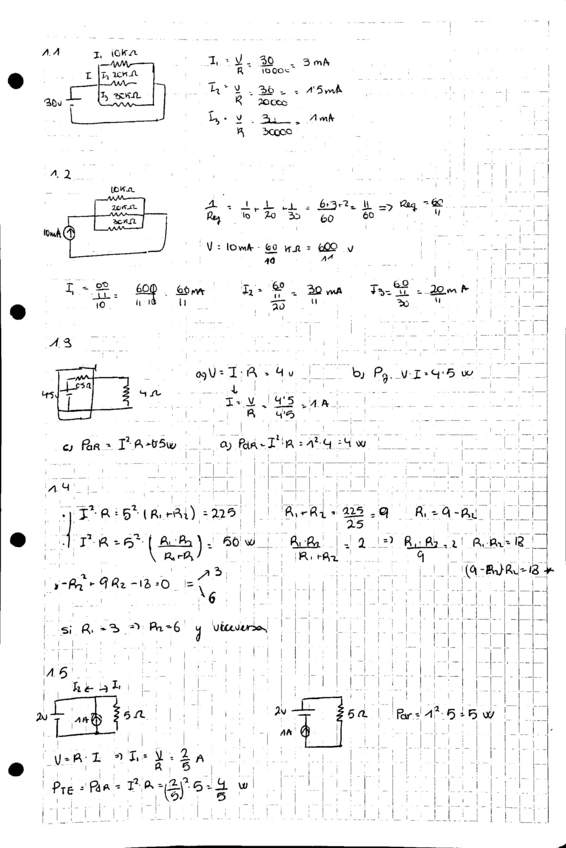 1.1
I₁ 10KΩ
I I₂ 20KΩ
I₃ 30KΩ
30v
I₁ = V/R = 30/10000 = 3 mA
I₂ = V/R = 30/20000 = 1'5mA
I₃ = V/R = 30/30000 = 1mA
1.2
10KΩ
20KΩ
30KΩ
10mA
1/Req = 1/10 + 1/20 + 1/30 = 6+3+2/60 = 11/60 => Req = 60/11
V = 10mA · 60/10 KΩ = 600/11 V
I₁ = 600/11/10 = 600/11·10 = 60/11 mA I₂ = 60/11/20 = 30/11 mA I₃ = 60/11/30 = 20/11 mA
1.3
0'5Ω
4'5V
4Ω
a) V = I · R = 4 v b) Pg = V·I = 4'5 w
↓
I = V/R = 4'5/4'5 = 1A
c) PdR = I²·R = 0'5w a) PdR = I²·R = 1²·4 = 4 w
1.4
I²·R = 5²·(R₁+R₂) = 225 R₁+R₂ = 225/25 = 9 R₁ = 9-R₂
I²·R = 5²·(R₁·R₂/R₁+R₂) = 50 w R₁·R₂/R₁+R₂ = 2 => R₁·R₂/9 = 2 R₁·R₂ = 18
(9-R₂)R₂ = 18 *
-R₂² + 9R₂ - 18 = 0 = 3
6
si R₁ = 3 => R₂ = 6 y viceversa
1.5
I₂ ← → I₁
2v 1A 5Ω
2v 5Ω
1A
PdR = 1²·5 = 5 w
V = R·I => I₁ = V/R = 2/5 A
PTE = PdR = I²·R = (2/5)²·5 = 4/5 w